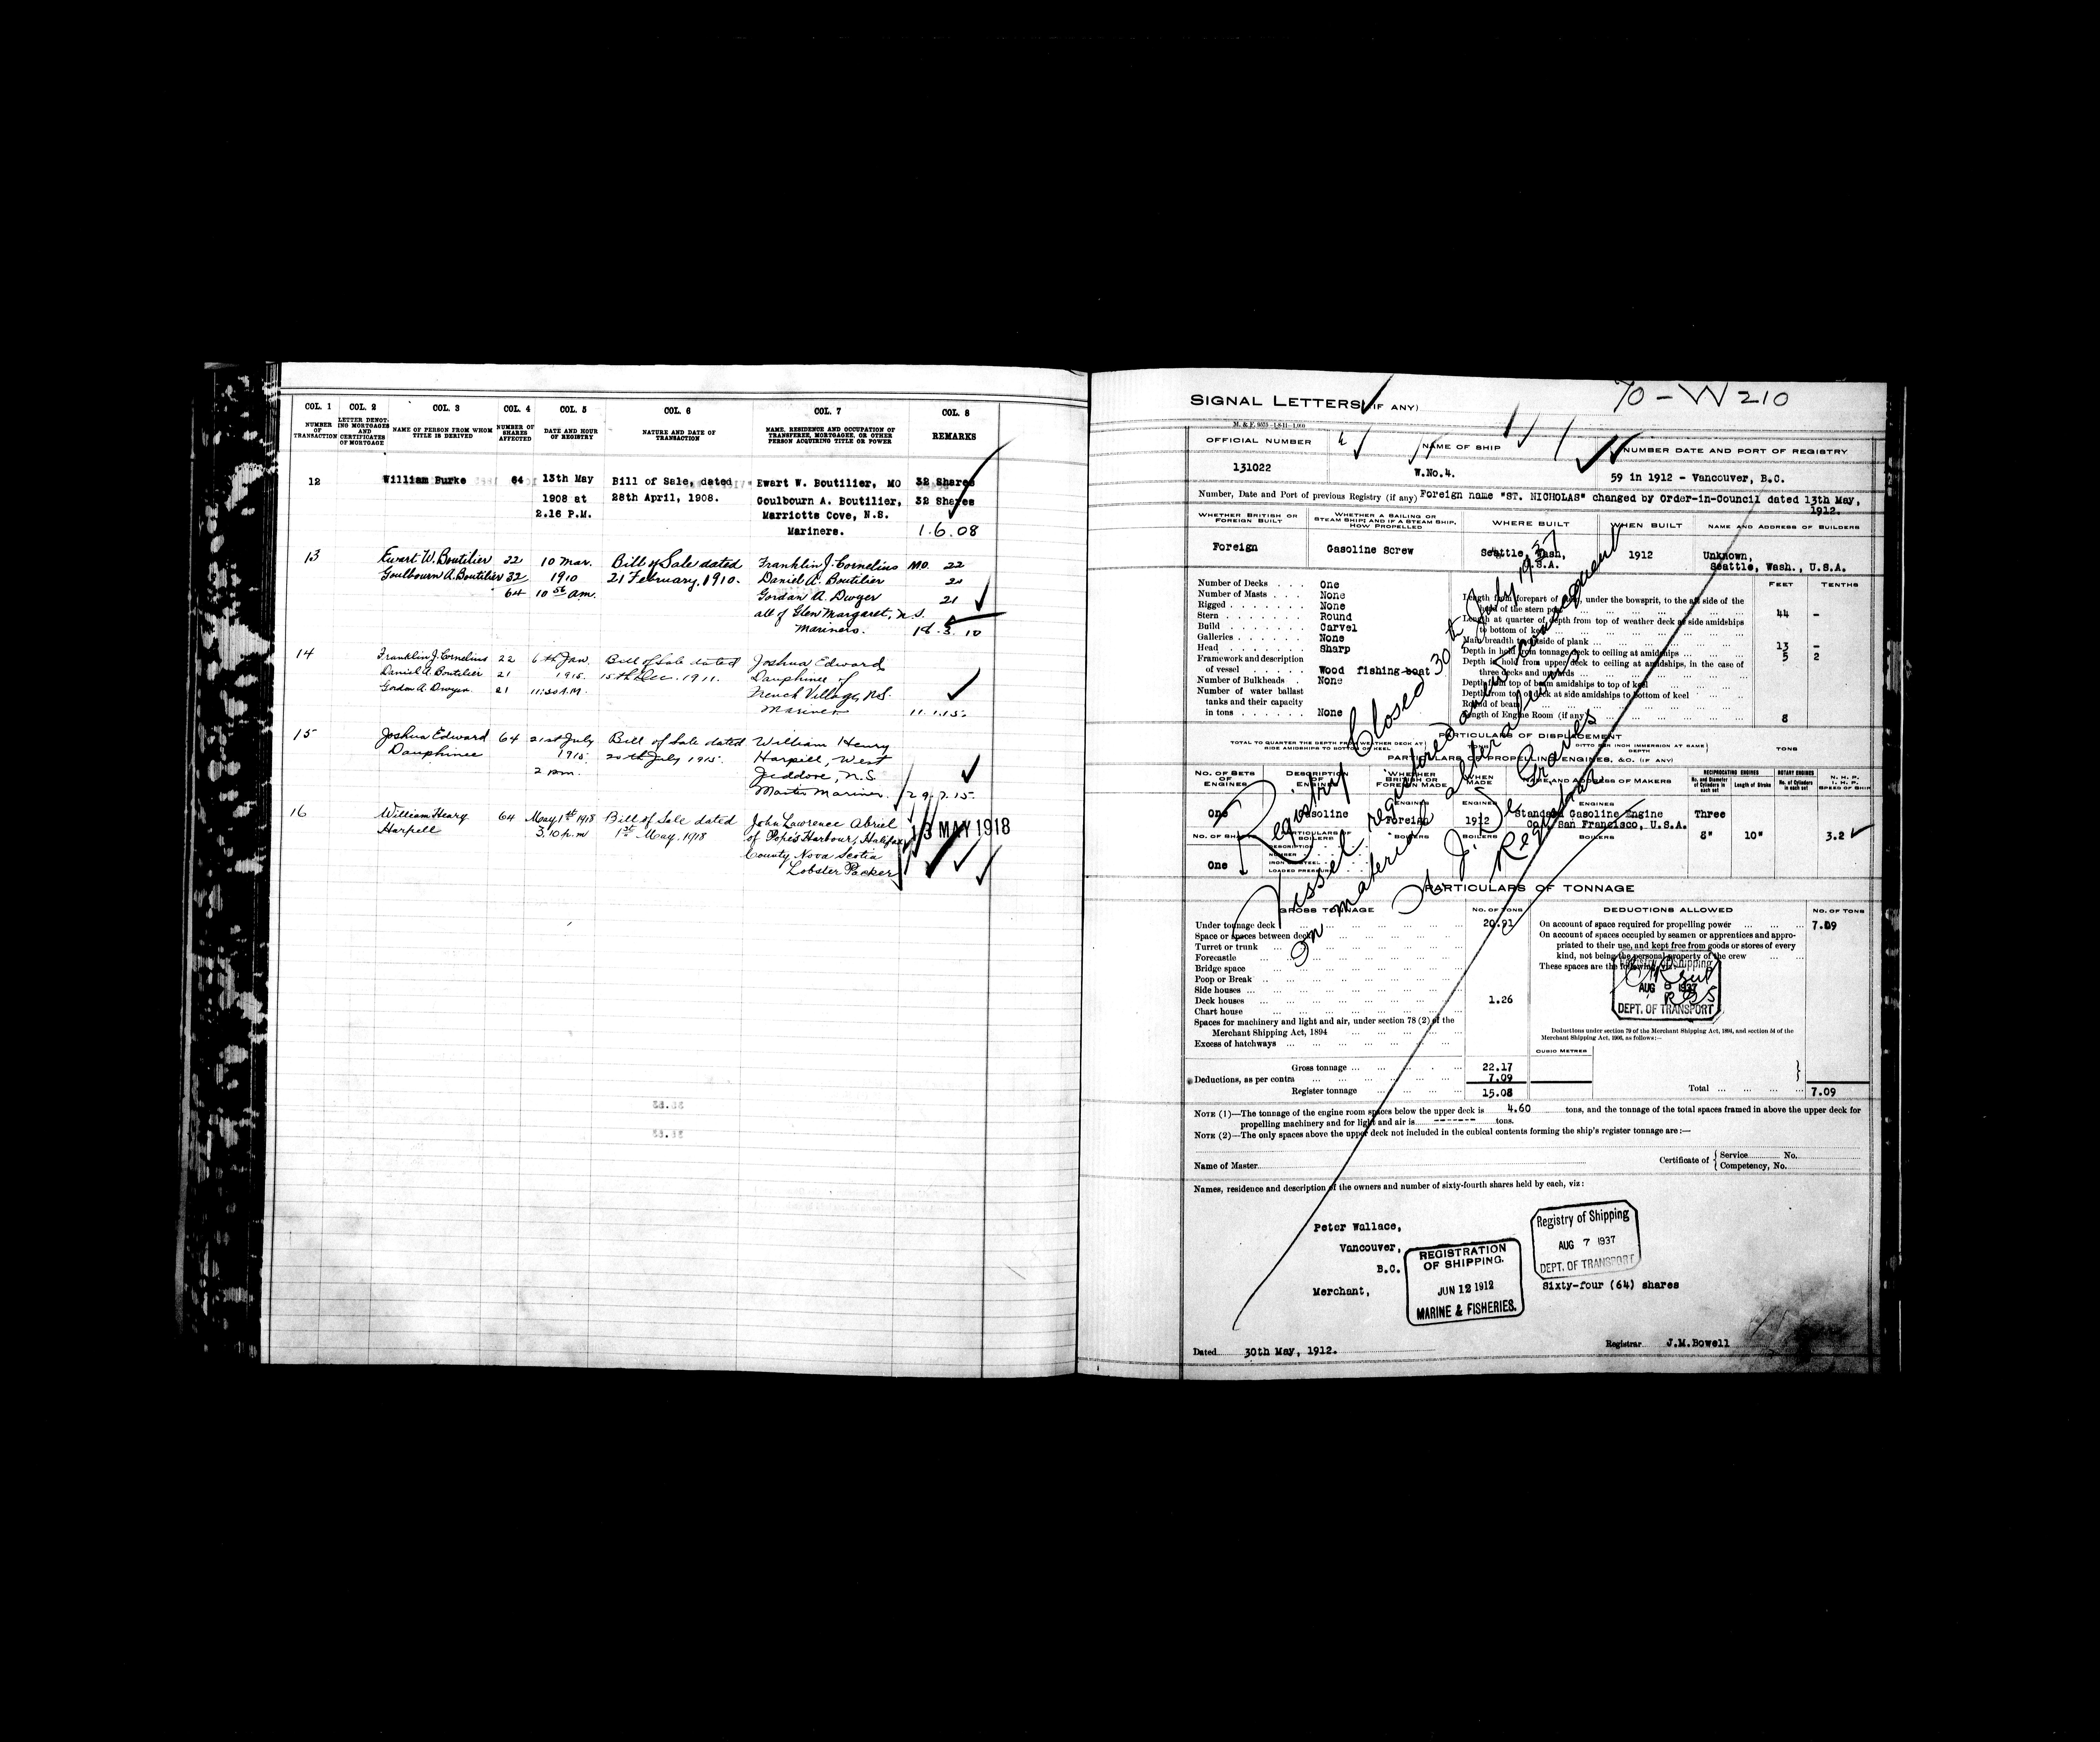 COL. 1 COL. 2 COL. 3 COL. 4 COL. 5 COL. 6 COL. 7 COL. 8
NUMBER OF TRANSACTION
LETTER DENOTING MORTGAGES AND CERTIFICATES OF MORTGAGE
NAME OF PERSON FROM WHOM TITLE IS DERIVED
NUMBER OF SHARES AFFECTED
DATE AND HOUR OF REGISTRY
NATURE AND DATE OF TRANSACTION
NAME, RESIDENCE AND OCCUPATION OF TRANSFEREE, MORTGAGEE, OR OTHER PERSON ACQUIRING TITLE OR POWER
REMARKS
12 William Burke 64 13th May Bill of Sale, dated Ewart W. Boutilier, MO 32 Shares
1908 at 28th April, 1908. Goulbourn A. Boutilier, 32 Shares
2.16 P.M. Marriotts Cove, N.S.
Mariners. 1.6.08
13 Ewart W. Boutilier 32 10 Mar. Bill of Sale dated Franklin J. Cornelius MO. 22
Goulbourn A. Boutilier 32 1910 21 February, 1910. Daniel A. Boutilier 21
64 10 50 am. Gordan A. Dwyer 21
all of Glen Margaret, N.S.
Mariners. 18.3.10
14 Franklin J. Cornelius 22 6th Jan. Bill of Sale dated Joshua Edward
Daniel A. Boutilier 21 1915. 15th Dec. 1911. Dauphinee of
Gordon A. Dwyer 21 11:30 A.M. French Village, N.S.
Mariner 11.1.15.
15 Joshua Edward 64 21st July Bill of Sale dated William Henry
Dauphinee 1915. 20th July 1915. Harpell, West
2 p.m. Jeddore, N.S.
Master Mariner. 29.7.15.
16 William Henry 64 May 1st 1918 Bill of Sale dated John Lawrence Abriel
Harpell 3.10 p.m 1st May. 1918 of Pope's Harbour, Halifax
13 MAY 1918
County Nova Scotia
Lobster Packer
SIGNAL LETTERS (IF ANY)
70-W 210
OFFICIAL NUMBER NAME OF SHIP NUMBER DATE AND PORT OF REGISTRY
131022 W.No.4. 59 in 1912 - Vancouver, B.C.
Number, Date and Port of previous Registry (if any) Foreign name "ST. NICHOLAS" changed by Order-in-Council dated 13th May,
1912.
WHETHER BRITISH OR FOREIGN BUILT
WHETHER A SAILING OR STEAM SHIP; AND IF A STEAM SHIP, HOW PROPELLED
WHERE BUILT WHEN BUILT NAME AND ADDRESS OF BUILDERS
Foreign Gasoline Screw Seattle, Wash, 1912 Unknown,
U.S.A. Seattle, Wash., U.S.A.
FEET TENTHS
Number of Decks One
Number of Masts None
Rigged None
Stern Round
Build Carvel
Galleries None
Head Sharp
Framework and description
of vessel Wood fishing boat
Number of Bulkheads None
Number of water ballast
tanks and their capacity
in tons None
Length from forepart of stem, under the bowsprit, to the aft side of the
head of the stern post 44 -
Length at quarter of depth from top of weather deck at side amidships
to bottom of keel
Main breadth to outside of plank 13 -
Depth in hold from tonnage deck to ceiling at amidships 5 2
Depth in hold from upper deck to ceiling at amidships, in the case of
three decks and upwards
Depth from top of beam amidships to top of keel
Depth from top of deck at side amidships to bottom of keel
Round of beam
Length of Engine Room (if any) 8
Registry Closed 30th July 1937
Vessel registered anew consequent
on material alterations
Registrar
PARTICULARS OF DISPLACEMENT
TOTAL TO QUARTER THE DEPTH FROM WEATHER DECK AT SIDE AMIDSHIPS TO BOTTOM OF KEEL
DITTO PER INCH IMMERSION AT SAME DEPTH
TONS
PARTICULARS OF PROPELLING ENGINES, &C. (IF ANY)
NO. OF SETS OF ENGINES
DESCRIPTION OF ENGINES
WHETHER BRITISH OR FOREIGN MADE
WHEN MADE
NAME AND ADDRESS OF MAKERS
RECIPROCATING ENGINES
No. and Diameter of Cylinders in each set
Length of Stroke
ROTARY ENGINES
No. of Cylinders in each set
N. H. P.
I. H. P.
SPEED OF SHIP
ENGINES ENGINES ENGINES
One Gasoline Foreign 1912 Standard Gasoline Engine Three
Co., San Francisco, U.S.A.
BOILERS BOILERS BOILERS
8" 10" 3.2
One
PARTICULARS OF TONNAGE
GROSS TONNAGE NO. OF TONS DEDUCTIONS ALLOWED NO. OF TONS
Under tonnage deck 20.91
Space or spaces between decks
Turret or trunk
Forecastle
Bridge space
Poop or Break
Side houses
Deck houses 1.26
Chart house
Spaces for machinery and light and air, under section 78 (2) of the
Merchant Shipping Act, 1894
Excess of hatchways
Gross tonnage 22.17
Deductions, as per contra 7.09
Register tonnage 15.08
On account of space required for propelling power 7.09
On account of spaces occupied by seamen or apprentices and appro-
priated to their use, and kept free from goods or stores of every
kind, not being the personal property of the crew
These spaces are the following
Registry of Shipping
AUG 1937
DEPT. OF TRANSPORT
Deductions under section 79 of the Merchant Shipping Act, 1894, and section 54 of the
Merchant Shipping Act, 1906, as follows:—
CUBIC METRES
Total 7.09
NOTE (1)—The tonnage of the engine room spaces below the upper deck is 4.60 tons, and the tonnage of the total spaces framed in above the upper deck for
propelling machinery and for light and air is ------- tons.
NOTE (2)—The only spaces above the upper deck not included in the cubical contents forming the ship's register tonnage are:—
Name of Master
Certificate of { Service No.
Competency, No.
Names, residence and description of the owners and number of sixty-fourth shares held by each, viz:
Peter Wallace,
Vancouver,
B.C.
Merchant,
REGISTRATION
OF SHIPPING.
JUN 12 1912
MARINE & FISHERIES.
Registry of Shipping
AUG 7 1937
DEPT. OF TRANSPORT
Sixty-four (64) shares
Dated 30th May, 1912. Registrar J.M.Bowell